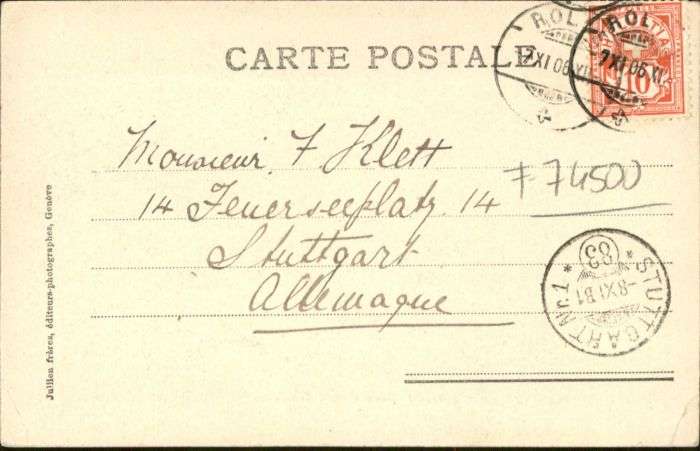 CARTE POSTALE
ROL
7 XI 06 XI
ROL
7 XI 06 XI
10
Monsieur F Klett
14 Feuerseeplatz 14
Stuttgart
Allemagne
F 74500
* STUTTGART Nr. 1 *
83
-8 XI B1
Jullien frères, éditeurs-photographes, Genève